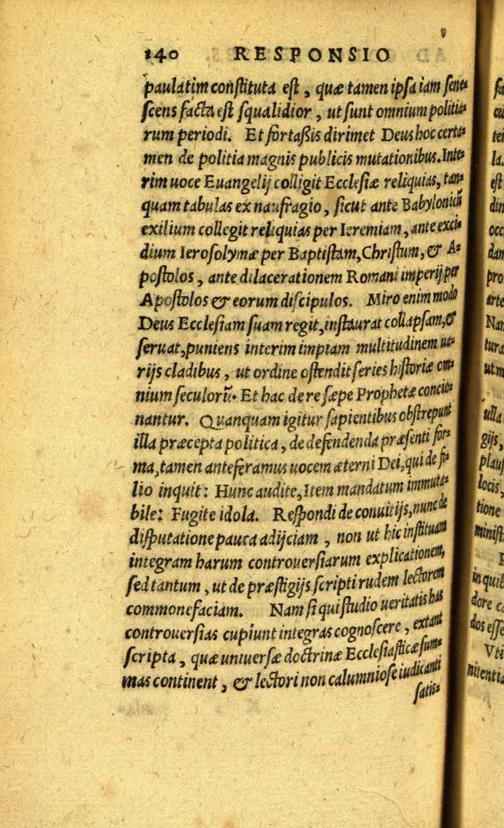 140 RESPONSIO
paulatim constituta est, quæ tamen ipsa iam sene-
scens facta est squalidior, ut sunt omnium politia-
rum periodi. Et fortaßis dirimet Deus hoc certa-
men de politia magnis publicis mutationibus. Inte-
rim uoce Euangelij colligit Ecclesiæ reliquias, tan-
quam tabulas ex naufragio, sicut ante Babylonicū
exilium collegit reliquias per Ieremiam, ante exci-
dium Ierosolymæ per Baptistam, Christum, & A-
postolos, ante dilacerationem Romani imperij per
Apostolos & eorum discipulos. Miro enim modo
Deus Ecclesiam suam regit, instaurat collapsam, &
seruat, puniens interim impiam multitudinem ua-
rijs cladibus, ut ordine ostendit series historiæ om-
nium seculorū. Et hac de re sæpe Prophetæ concio-
nantur. Quanquam igitur sapientibus obstrepunt
illa præcepta politica, de defendenda præsenti for-
ma, tamen anteferamus uocem æterni Dei, qui de fi-
lio inquit: Hunc audite, Item mandatum immuta-
bile: Fugite idola. Respondi de conuitijs, nunc de
disputatione pauca adijciam, non ut hic instituam
integram harum controuersiarum explicationem,
sed tantum, ut de præstigijs scripti rudem lectorem
commonefaciam. Nam si qui studio ueritatis has
controuersias cupiunt integras cognoscere, extant
scripta, quæ uniuersæ doctrinæ Ecclesiasticæ sum-
mas continent, & lectori non calumniose iudicanti
satis-